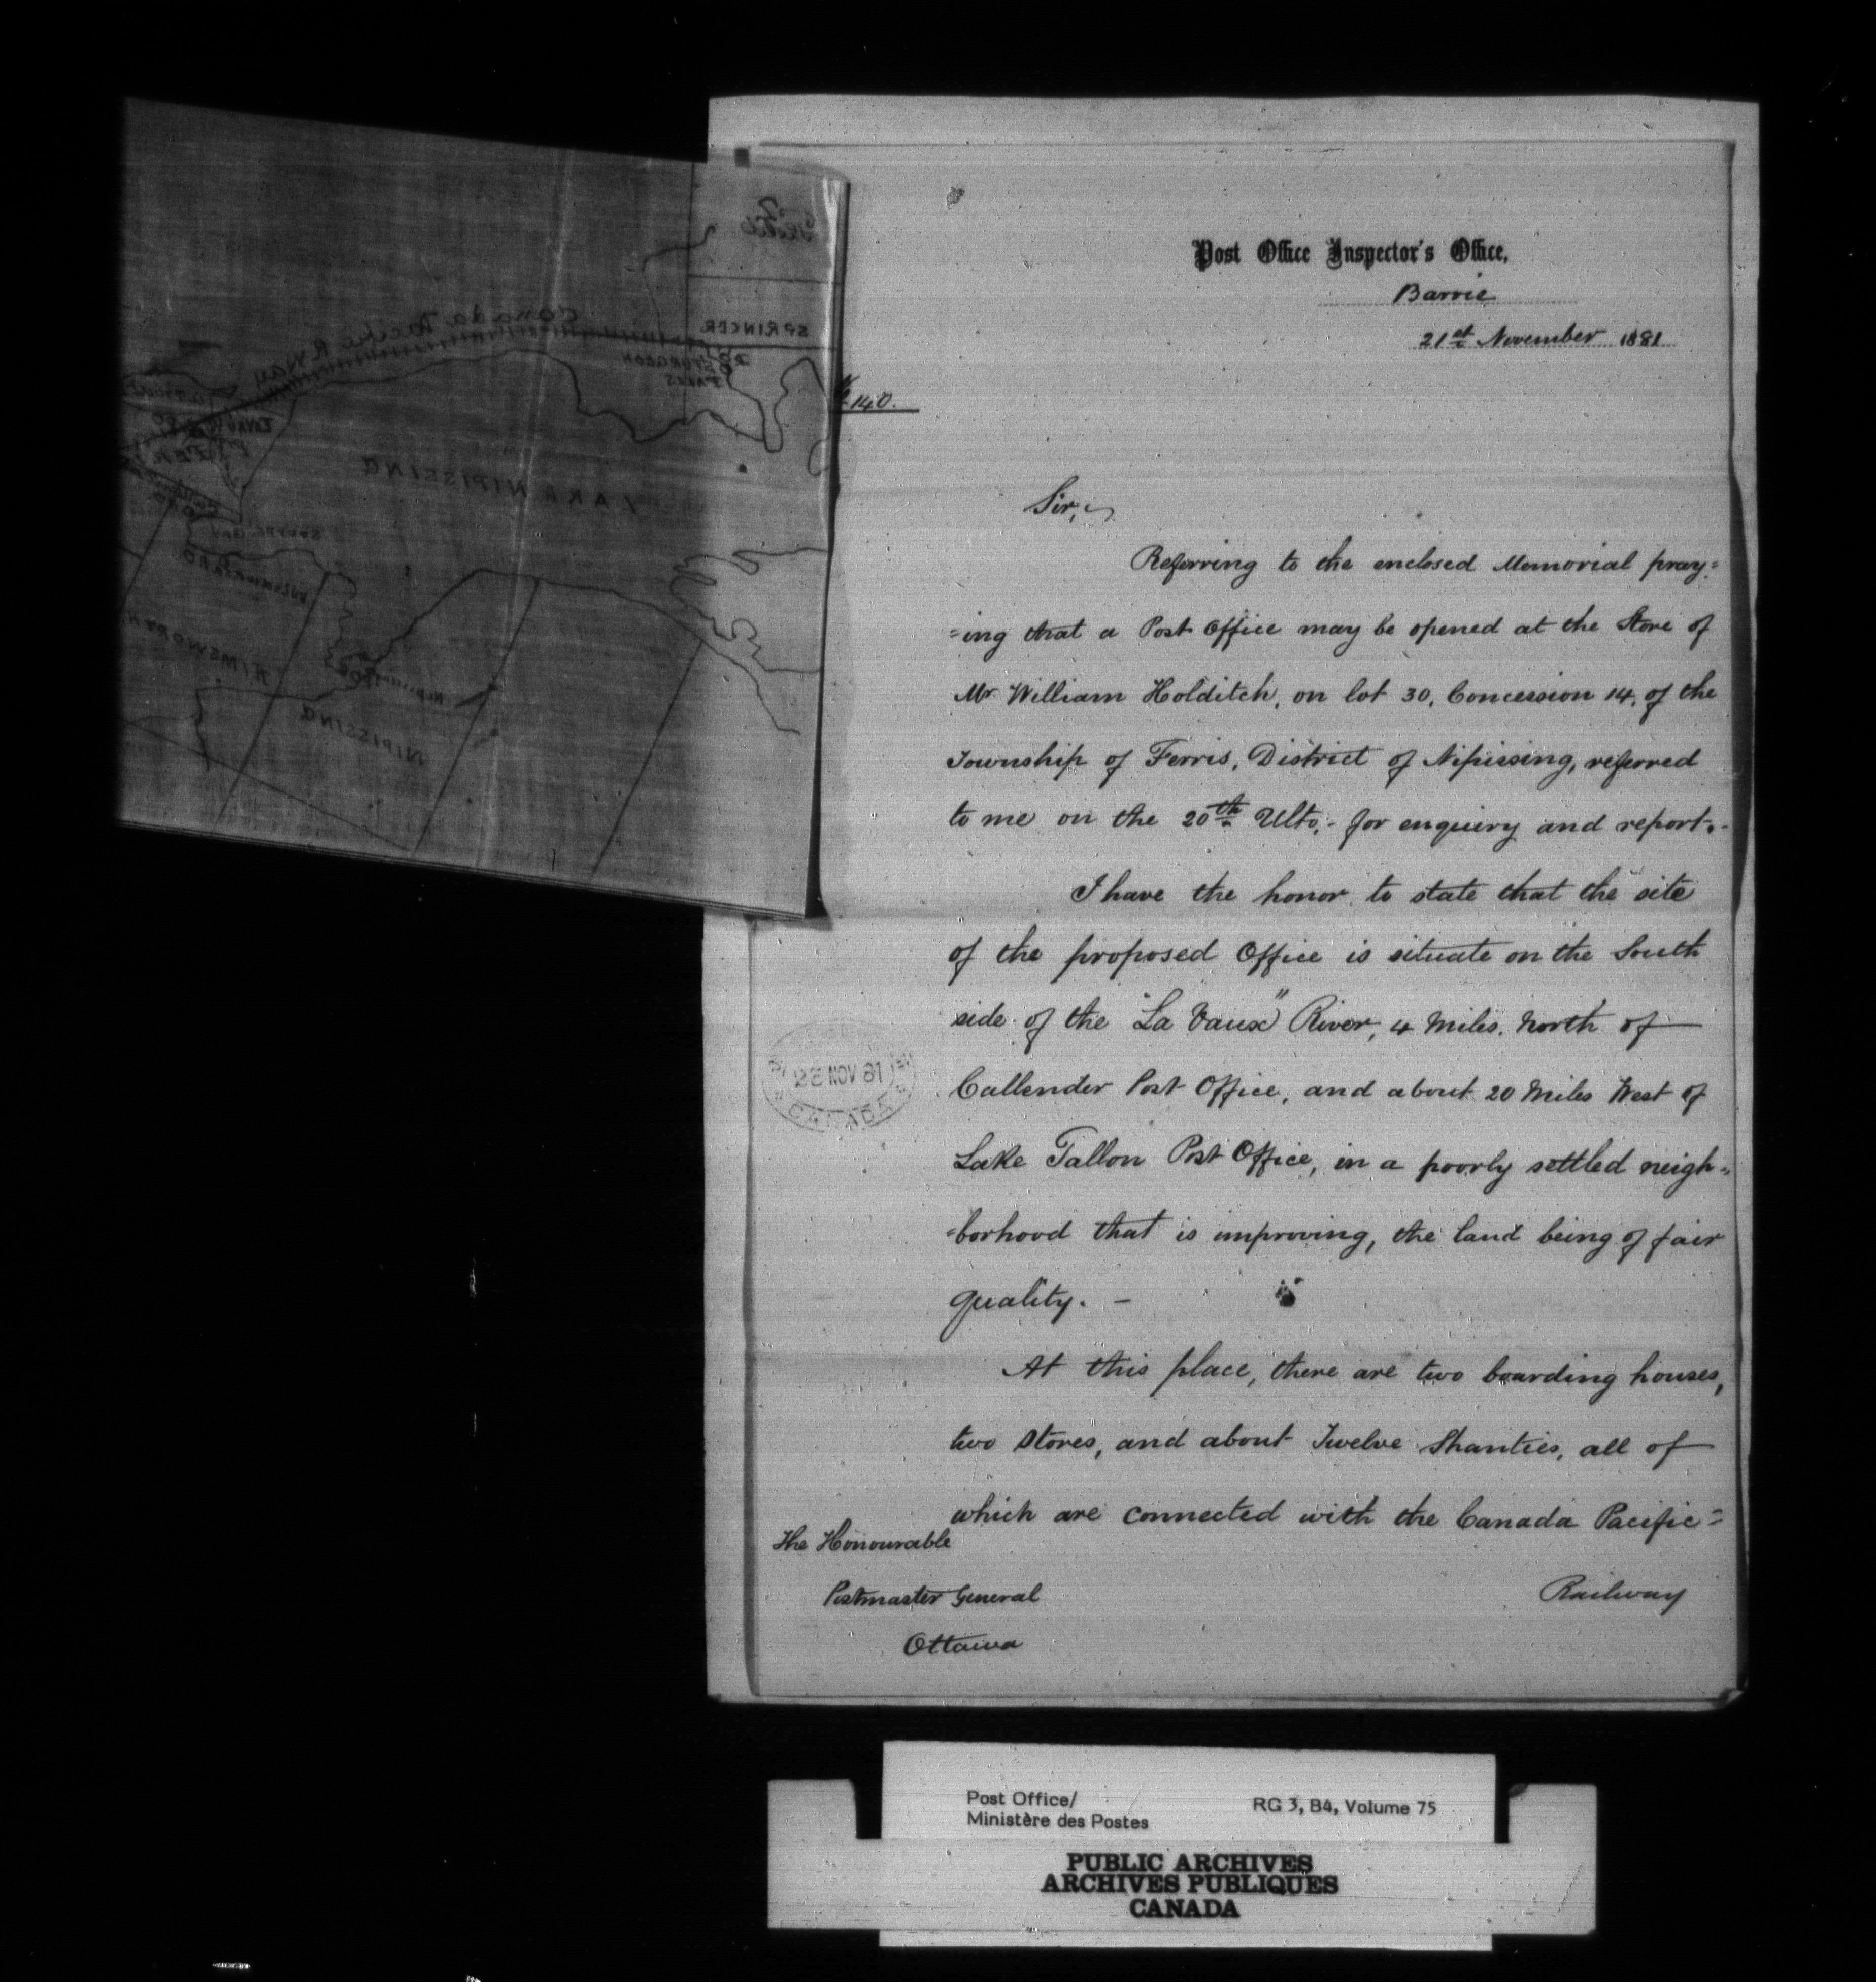 Post Office Inspector's Office,
Barrie
21st November 1881
No 140.
Sir,
Referring to the enclosed Memorial pray=
=ing that a Post Office may be opened at the Store of
Mr. William Holditch, on lot 30, Concession 14, of the
Township of Ferris, District of Nipissing, referred
to me on the 20th Ulto,- for enquiry and report.-
I have the honor to state that the site
of the proposed Office is situate on the South
side of the "La Vaux" River, 4 Miles North of
Callender Post Office, and about 20 Miles West of
Lake Tallon Post Office, in a poorly settled neigh=
=borhood that is improving, the land being of fair
quality. -
At this place, there are two boarding houses,
two stores, and about Twelve Shanties, all of
which are connected with the Canada Pacific=
Railway
The Honourable
Postmaster General
Ottawa
NOV 81
CANADA
Field
SPRINGER
STURGEON
FALLS
Canada Pacific R. Way
LAKE NIPISSING
SOUTH EAST BAY
HIMSWORTH
NIPISSING
Post Office/
Ministère des Postes
RG 3, B4, Volume 75
PUBLIC ARCHIVES
ARCHIVES PUBLIQUES
CANADA